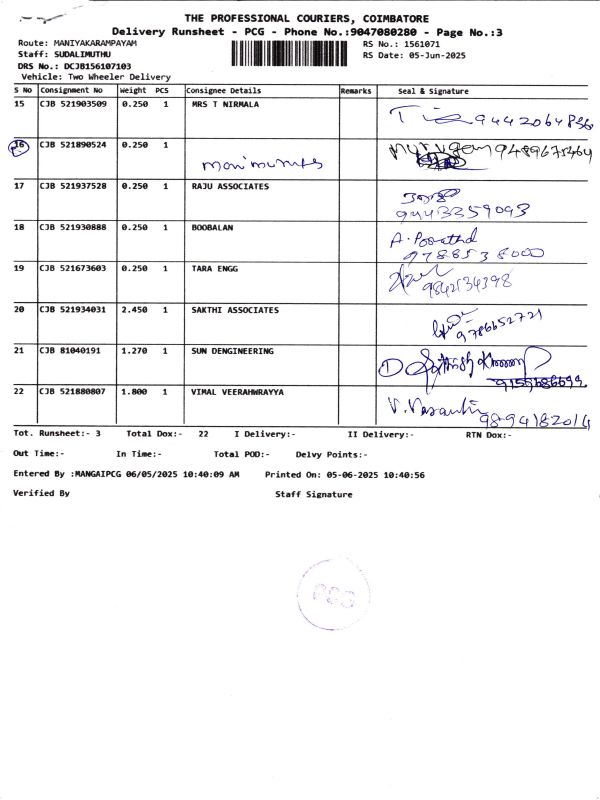 THE PROFESSIONAL COURIERS, COIMBATORE
Delivery Runsheet - PCG - Phone No.:9047080280 - Page No.:3
Route: MANIYAKARAMPAYAM
Staff: SUDALIMUTHU
DRS No.: DCJB156107103
Vehicle: Two Wheeler Delivery
RS No.: 1561071
RS Date: 05-Jun-2025
S No Consignment No Weight PCS Consignee Details Remarks Seal & Signature
15 CJB 521903509 0.250 1 MRS T NIRMALA 9442064836
16 CJB 521890524 0.250 1 murugan 9489675464
17 CJB 521937528 0.250 1 RAJU ASSOCIATES 9443359093
18 CJB 521930888 0.250 1 BOOBALAN A. 9788538000
19 CJB 521673603 0.250 1 TARA ENGG 9842534398
20 CJB 521934031 2.450 1 SAKTHI ASSOCIATES 9786652721
21 CJB 81040191 1.270 1 SUN DENGINEERING
22 CJB 521880807 1.800 1 VIMAL VEERAHWRAYYA V. Vasanthi 9894182014
Tot. Runsheet:- 3 Total Dox:- 22 I Delivery:- II Delivery:- RTN Dox:-
Out Time:- In Time:- Total POD:- Delvy Points:-
Entered By :MANGAIPCG 06/05/2025 10:40:09 AM Printed On: 05-06-2025 10:40:56
Verified By Staff Signature
PCG